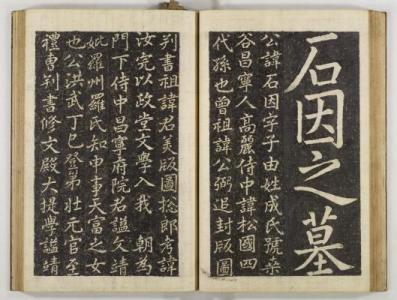 石因之墓
公諱石因字子由姓成氏號桑
谷昌寧人高麗侍中諱松國四
代孫也曾祖諱公弼追封版圖
判書祖諱君美版圖捴郎考諱
汝完以政堂文學入我 朝為
門下侍中昌寧府院君諡文靖
妣羅州羅氏知申事天富之女
也公洪武丁巳登第壯元官至
禮曹判書修文殿大提學諡靖